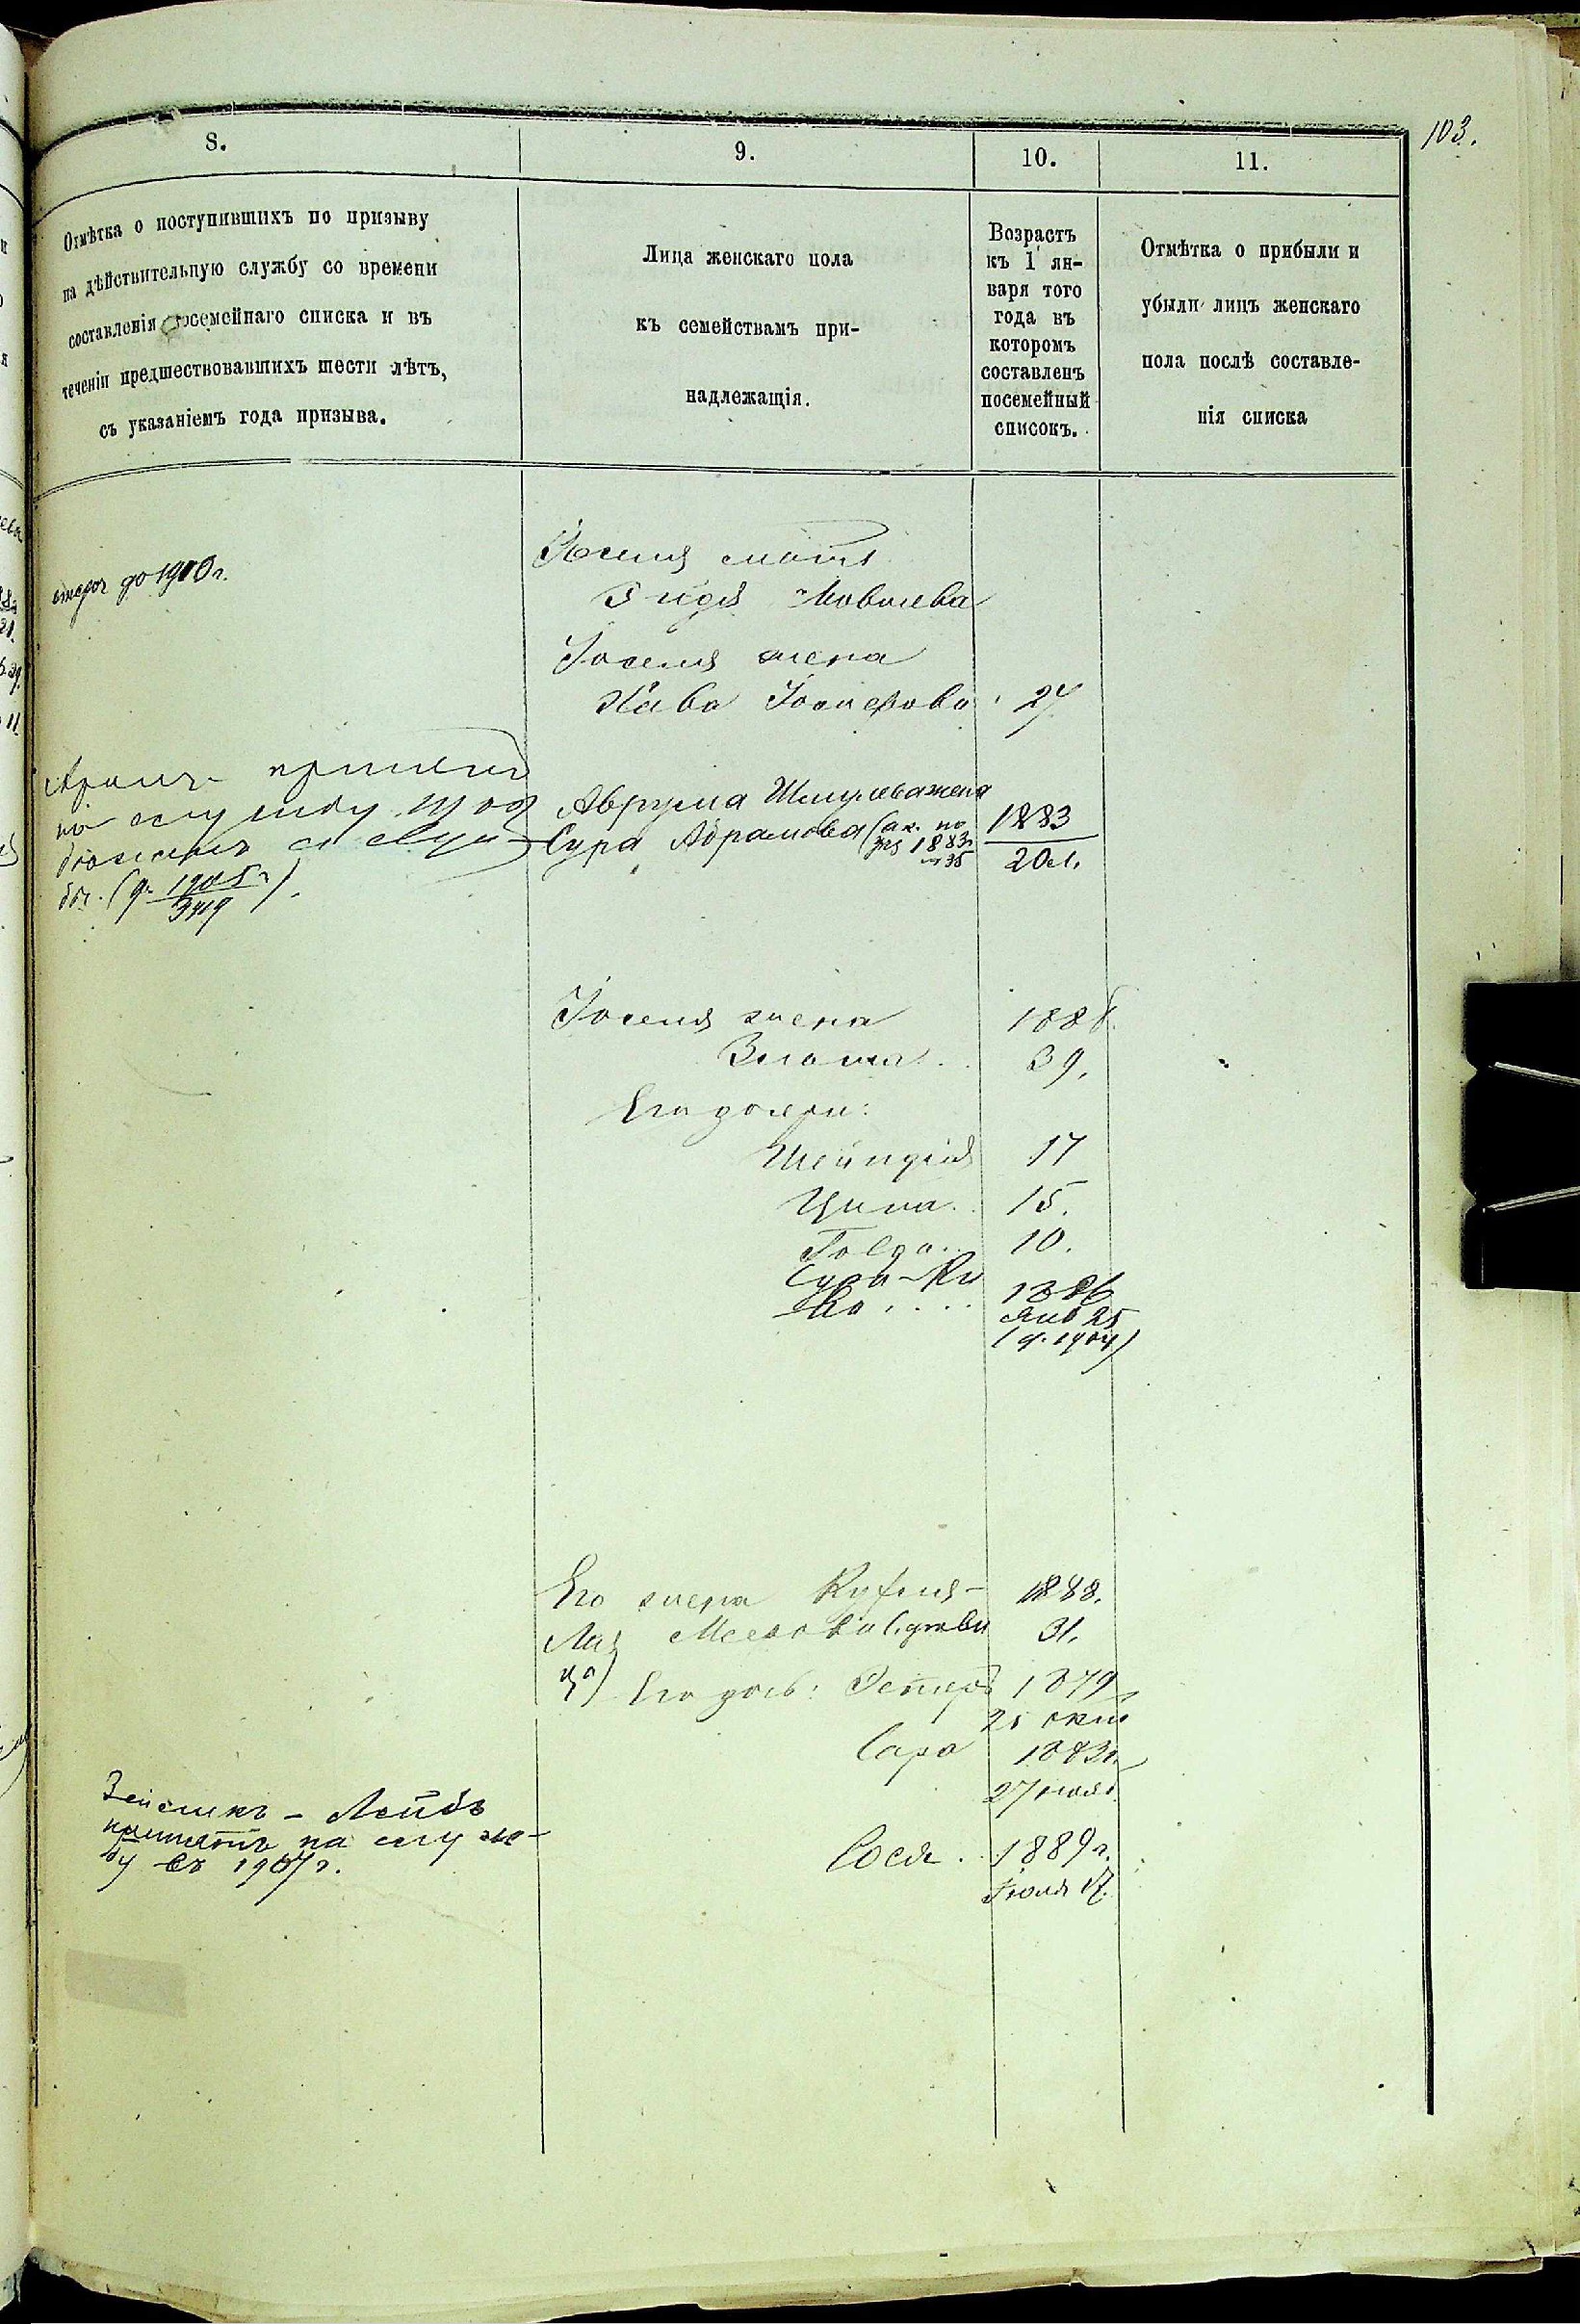 103.
8.
9.
10.
11.
Отмѣтка о поступившихъ по призыву
на дѣйствительную службу со времени
составленія посемейнаго списка и въ
теченіи предшествовавшихъ шести лѣтъ,
съ указаніемъ года призыва.
Лица женскаго пола
къ семействамъ при-
надлежащія.
Возрастъ
къ 1 ян-
варя того
года въ
которомъ
составленъ
посемейный
списокъ.
Отмѣтка о прибыли и
убыли лицъ женскаго
пола послѣ составле-
нія списка
до 1910 г.
Іоселя мать
Іоселя жена
Хава 27
на службу
(д. 1905 г.)
Аврума Шмулева жена
Сура Абрамова (ак. по 1883
1883 г.
№ 35 20 л.
Іоселя жена 188
Злата 39.
Его дочери:
Шейндля 17
Ципа 15.
Голда 10.
Сура-Ри
вка 1886
Янв 25
(д. 1904)
Его жена Руфля- 1888.
Лая 31.
ца) Его дочь: Эстеръ 1879
25 окт
Сара 1883 г.
27 нояб.
Зейликъ - Лейбъ
принятъ на служ-
бу въ 1907 г.
Сося. 1889 г.
Іюля 17.